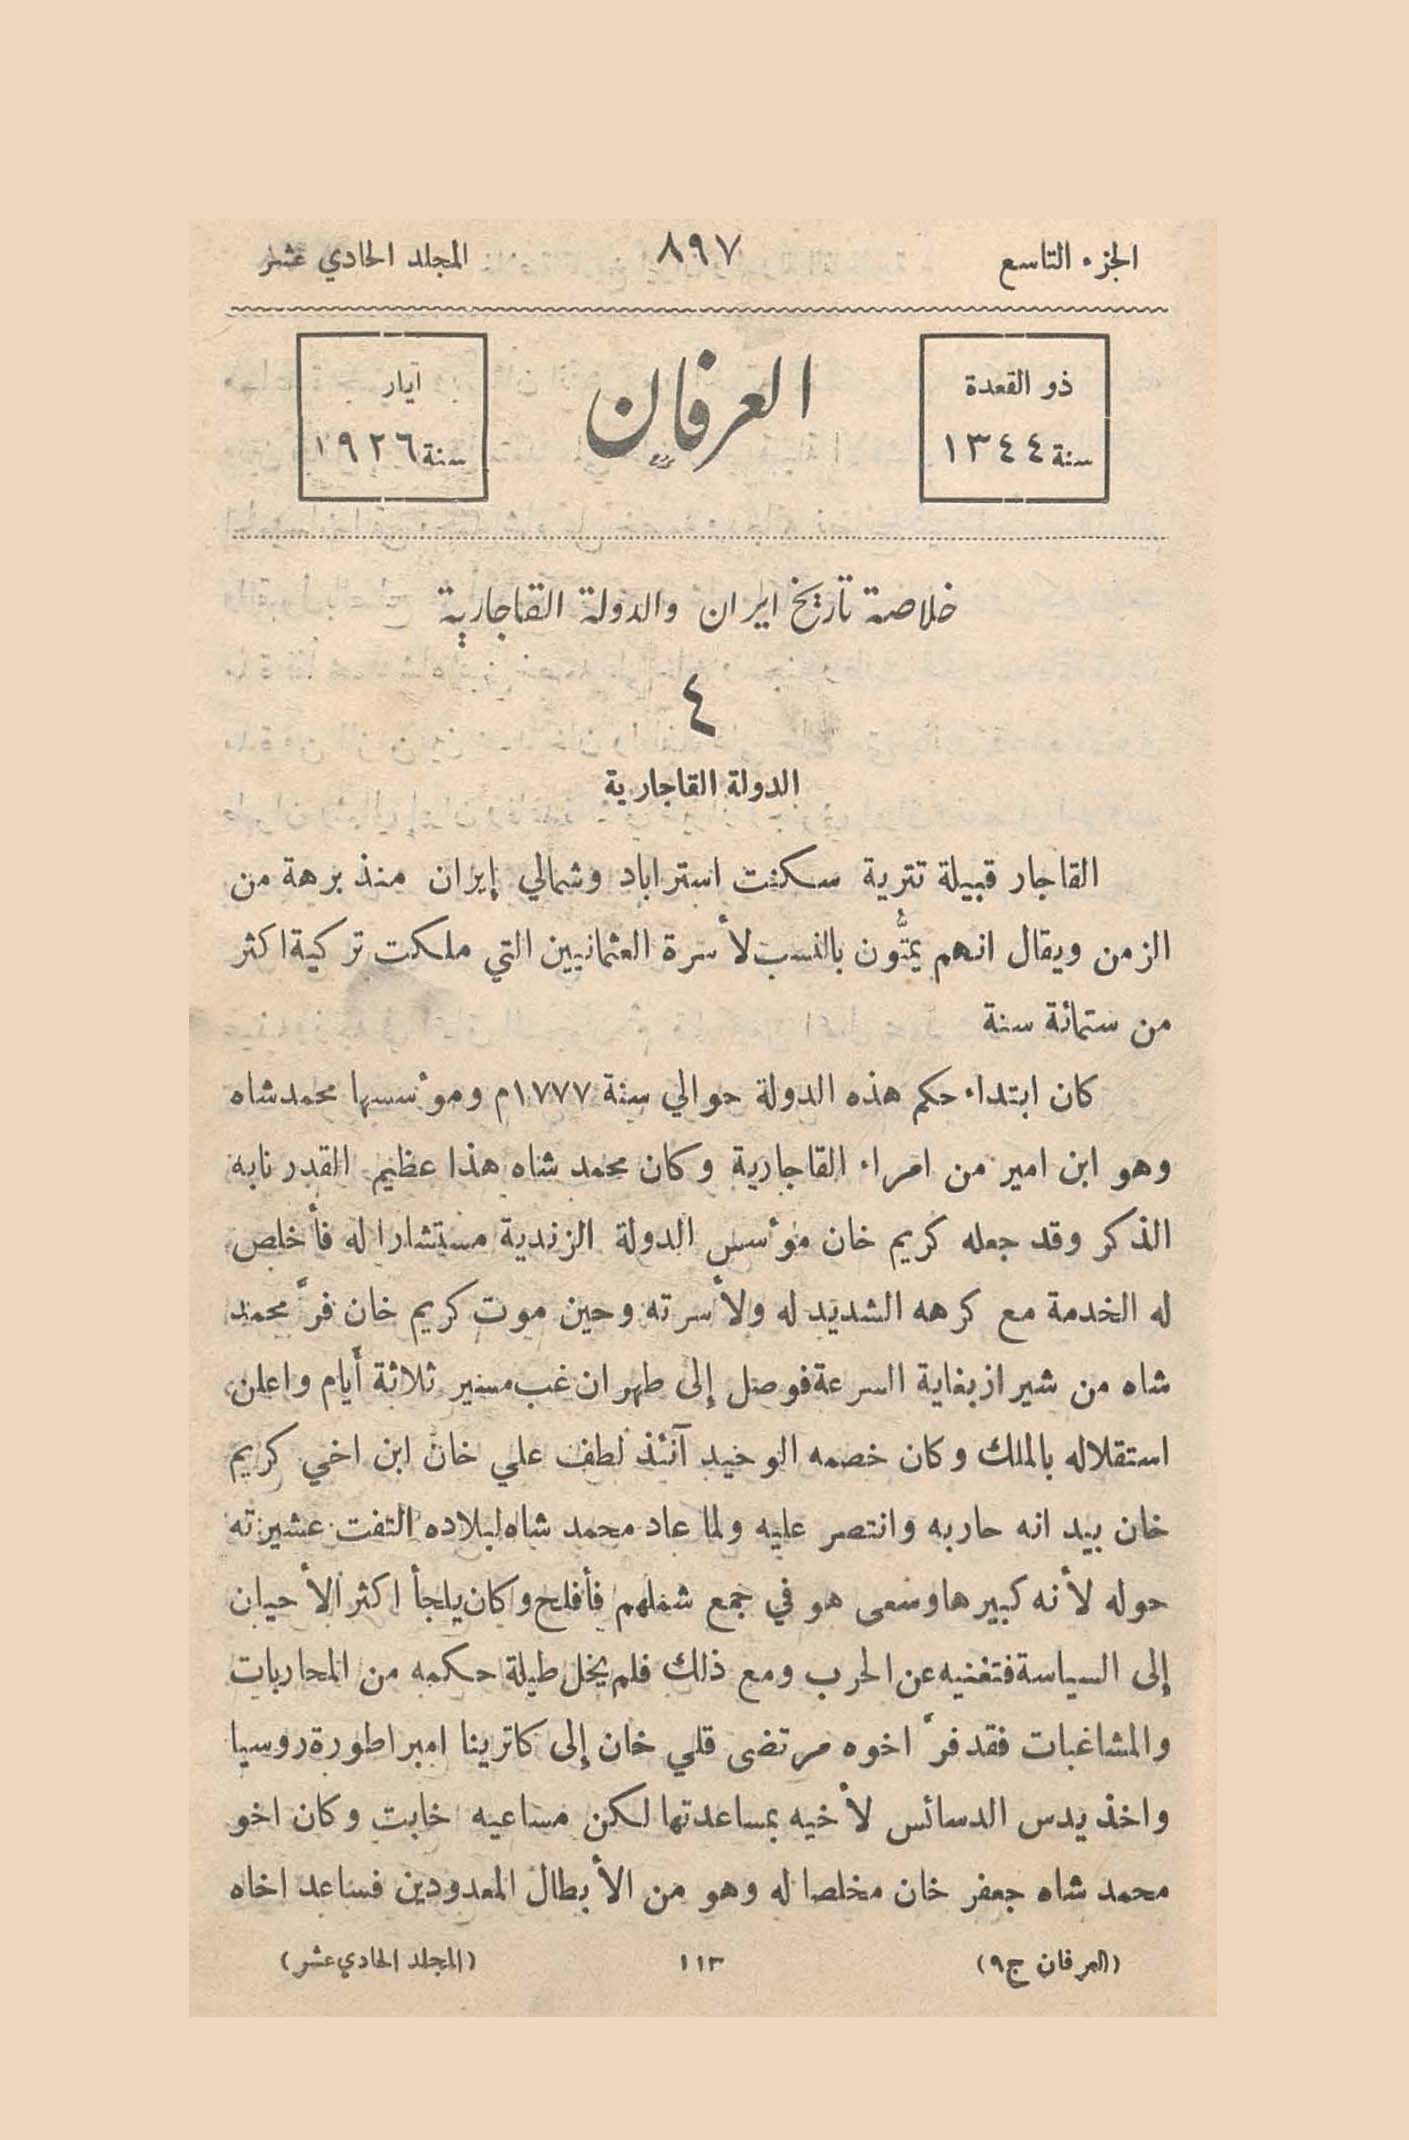 الجزء التاسع
٨٩٧
المجلد الحادي عشر
ذو القعدة
سنة ١٣٤٤
العرفان
أيار
سنة ١٩٢٦
خلاصة تاريخ ايران والدولة القاجارية
٤
الدولة القاجارية
القاجار قبيلة تترية سكنت استراباد وشمالي إيران منذ برهة من
الزمن ويقال انهم يمتُّون بالنسب لأسرة العثمانيين التي ملكت تركية اكثر
من ستمائة سنة
كان ابتداء حكم هذه الدولة حوالي سنة ١٧٧٧م ومؤسسها محمد شاه
وهو ابن امير من امراء القاجارية وكان محمد شاه هذا عظيم القدر نابه
الذكر وقد جعله كريم خان مؤسس الدولة الزندية مستشارا له فأخلص
له الخدمة مع كرهه الشديد له ولأسرته وحين موت كريم خان فرَّ محمد
شاه من شيراز بغاية السرعة فوصل إلى طهران غب مسير ثلاثة أيام واعلن
استقلاله بالملك وكان خصمه الوحيد آنئذ لطف علي خان ابن اخي كريم
خان بيد انه حاربه وانتصر عليه ولما عاد محمد شاه لبلاده التفت عشيرته
حوله لأنه كبيرها وسعى هو في جمع شملهم فأفلح وكان يلجأ اكثر الأحيان
إلى السياسة فتغنيه عن الحرب ومع ذلك فلم يخل طيلة حكمه من المحاربات
والمشاغبات فقد فرَّ اخوه مرتضى قلي خان إلى كاترينا امبراطورة روسيا
واخذ يدس الدسائس لأخيه بمساعدتها لكن مساعيه خابت وكان اخو
محمد شاه جعفر خان مخلصا له وهو من الأبطال المعدودين فساعد اخاه
(العرفان ج٩)
١١٣
(المجلد الحادي عشر)